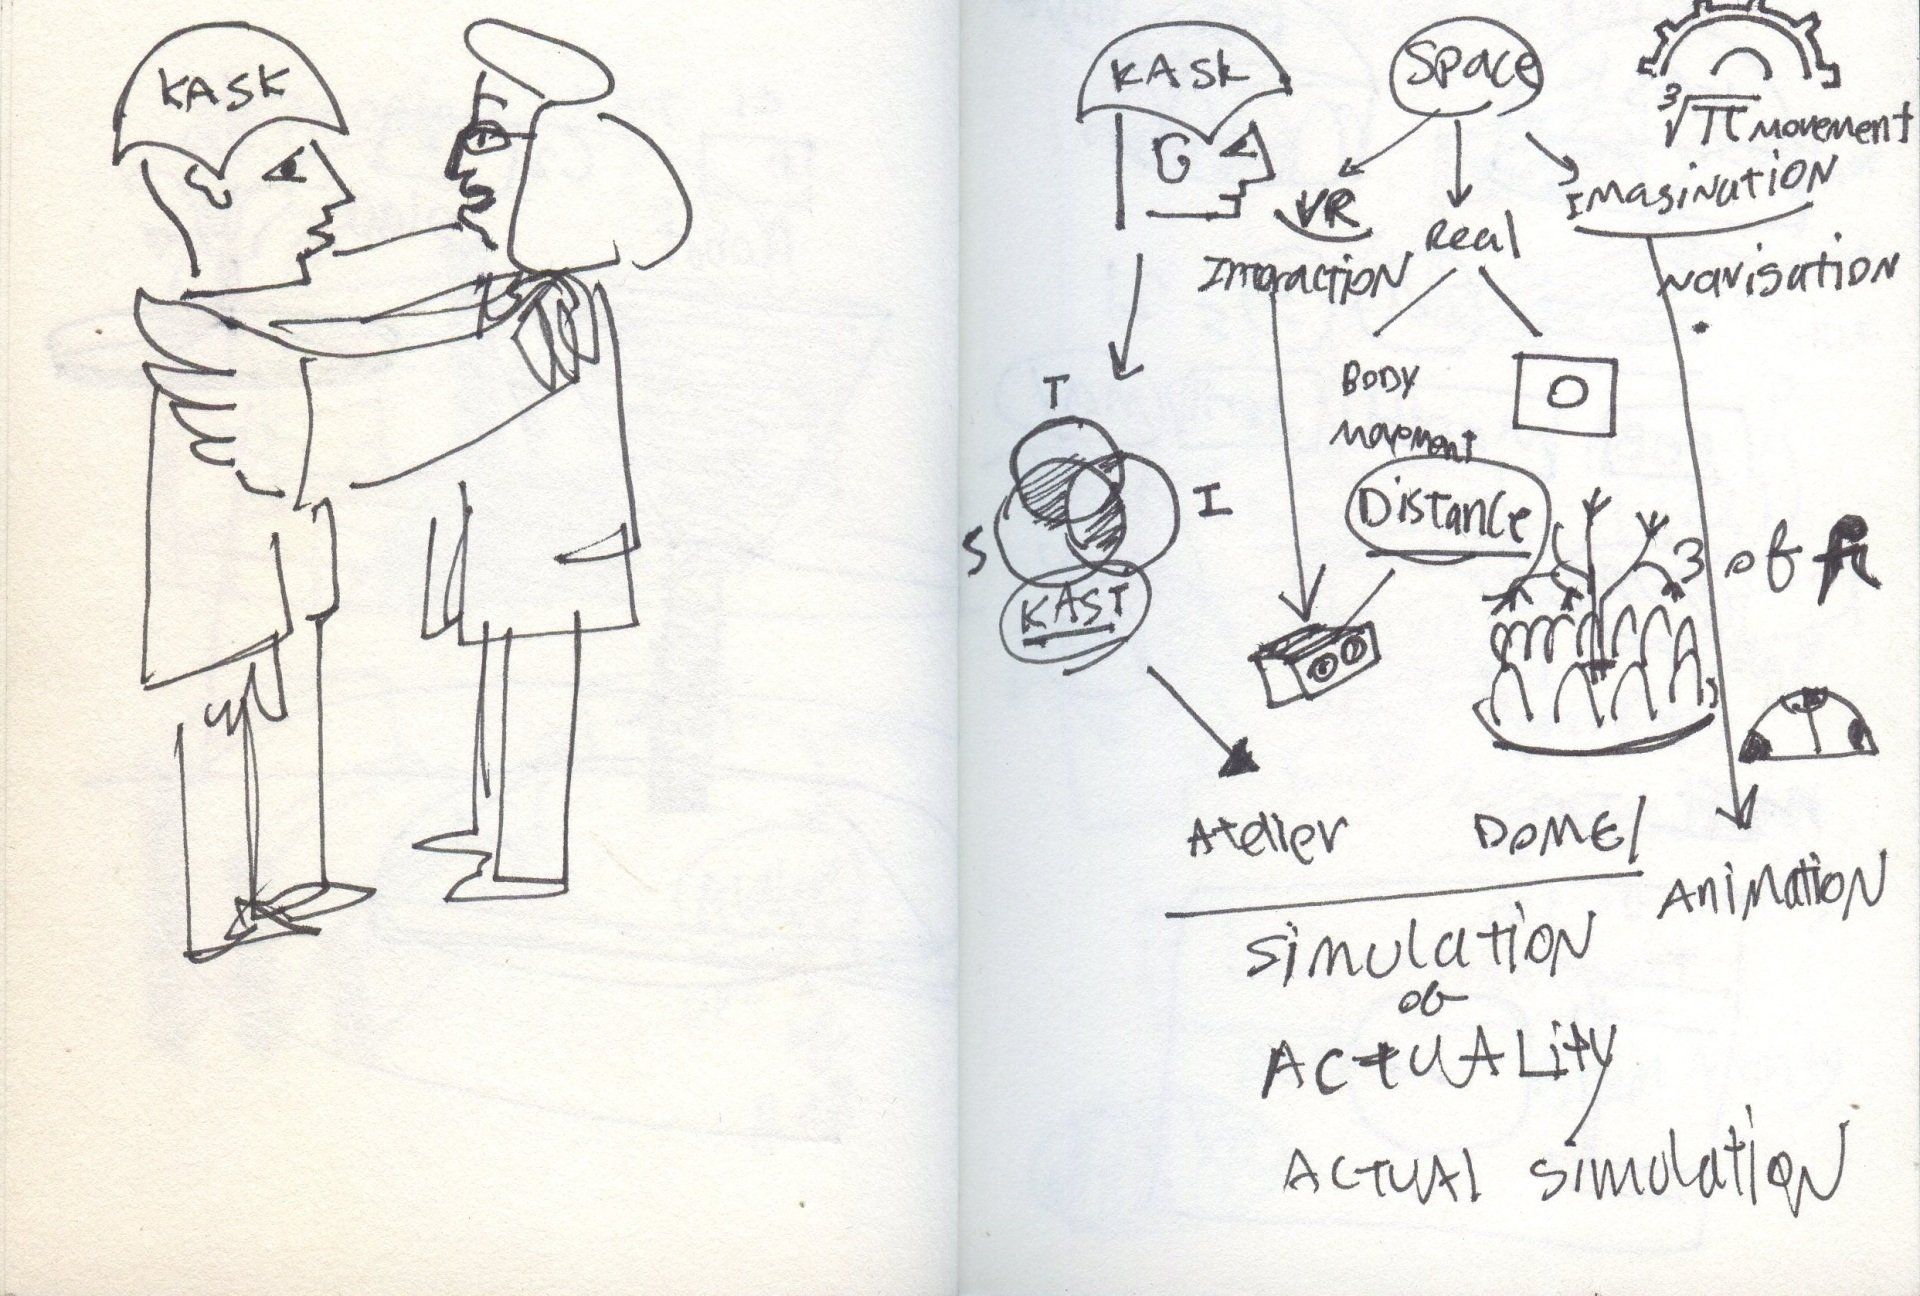 KASK
KASK
G
Space
³√π movement
VR
Real
Imagination
Interaction
navigation
T
S
I
KAST
Body
movement
Distance
3 of
Atelier
DOME/
Animation
Simulation
of
ACTUALity
ACTUAl simulation